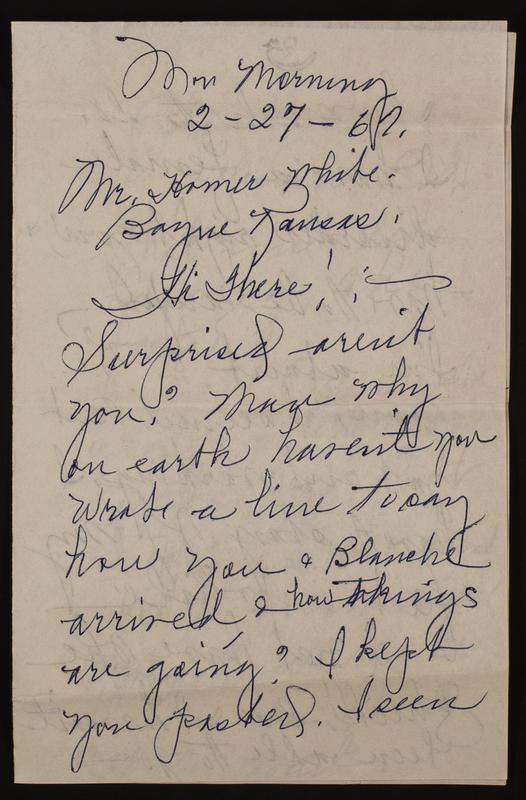 Mon Morning
2-27-67.
Mr. Homer White.
Kansas.
Hi There! :
Surprised arent
you? Man why
on earth haven't you
wrote a line to say
how you & Blanche
arrived & how things
are going? I kept
you posted. I seen